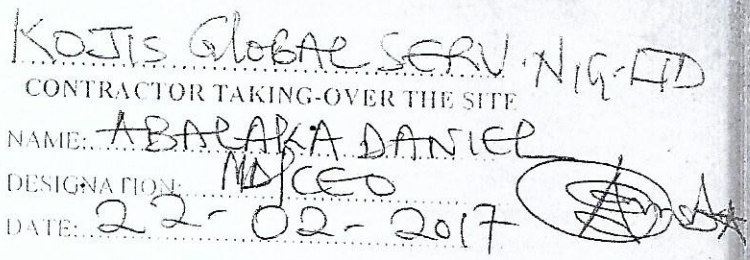 KOJIS GLOBAL SERV. NIG. LTD
CONTRACTOR TAKING-OVER THE SITE
NAME: ABALAKA DANIEL
DESIGNATION: MD/CEO
DATE: 22-02-2017